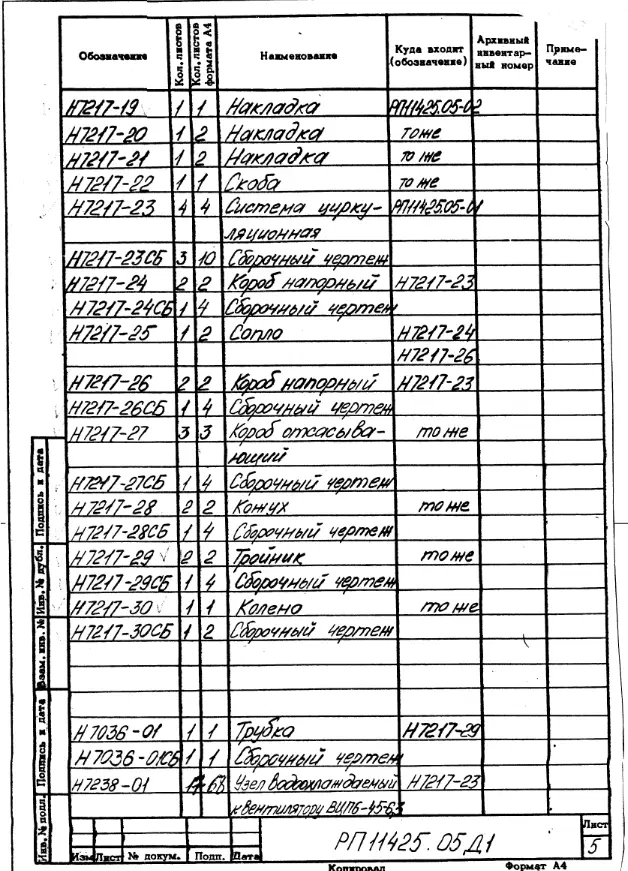 Обозначение Кол. листов Кол. листов формата А4 Наименование Куда входит (обозначение) Архивный инвентарный номер Примечание
Н7217-19 1 1 Накладка РП11425.05-02
Н7217-20 1 2 Накладка тоже
Н7217-21 1 2 Накладка то же
Н7217-22 1 1 Скоба то же
Н7217-23 4 4 Система цирку- РП11425.05-01
ляционная
Н7217-23СБ 3 10 Сборочный чертеж
Н7217-24 2 2 Короб напорный Н7217-23
Н7217-24СБ 1 4 Сборочный чертеж
Н7217-25 1 2 Сопло Н7217-24
Н7217-26
Н7217-26 2 2 Короб напорный Н7217-23
Н7217-26СБ 1 4 Сборочный чертеж
Н7217-27 3 3 Короб отсасыва- то же
ющий
Н7217-27СБ 1 4 Сборочный чертеж
Н7217-28 2 2 Кожух то же
Н7217-28СБ 1 4 Сборочный чертеж
Н7217-29 2 2 Тройник то же
Н7217-29СБ 1 4 Сборочный чертеж
Н7217-30 1 1 Колено то же
Н7217-30СБ 1 2 Сборочный чертеж
Н7036-01 1 1 Трубка Н7217-29
Н7036-01СБ 1 1 Сборочный чертеж
Н7238-01 Узел водоохлаждаемый Н7217-23
к вентилятору ВЦП6-45-6,3
Инв. № подл. Подпись и дата Взам. инв. № Инв. № дубл. Подпись и дата
Изм Лист № докум. Подп. Дата
РП11425.05Д1
Лист
5
Копировал Формат А4